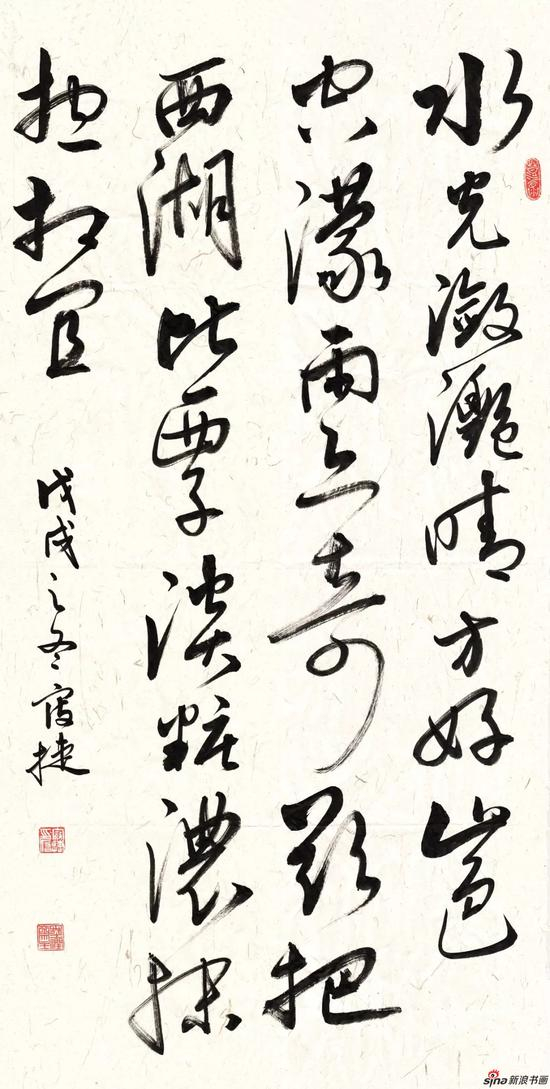 水光瀲灧晴方好山色
空濛雨亦奇欲把
西湖比西子淡粧濃抹
總相宜
戊戌之冬 捷
sina新浪书画